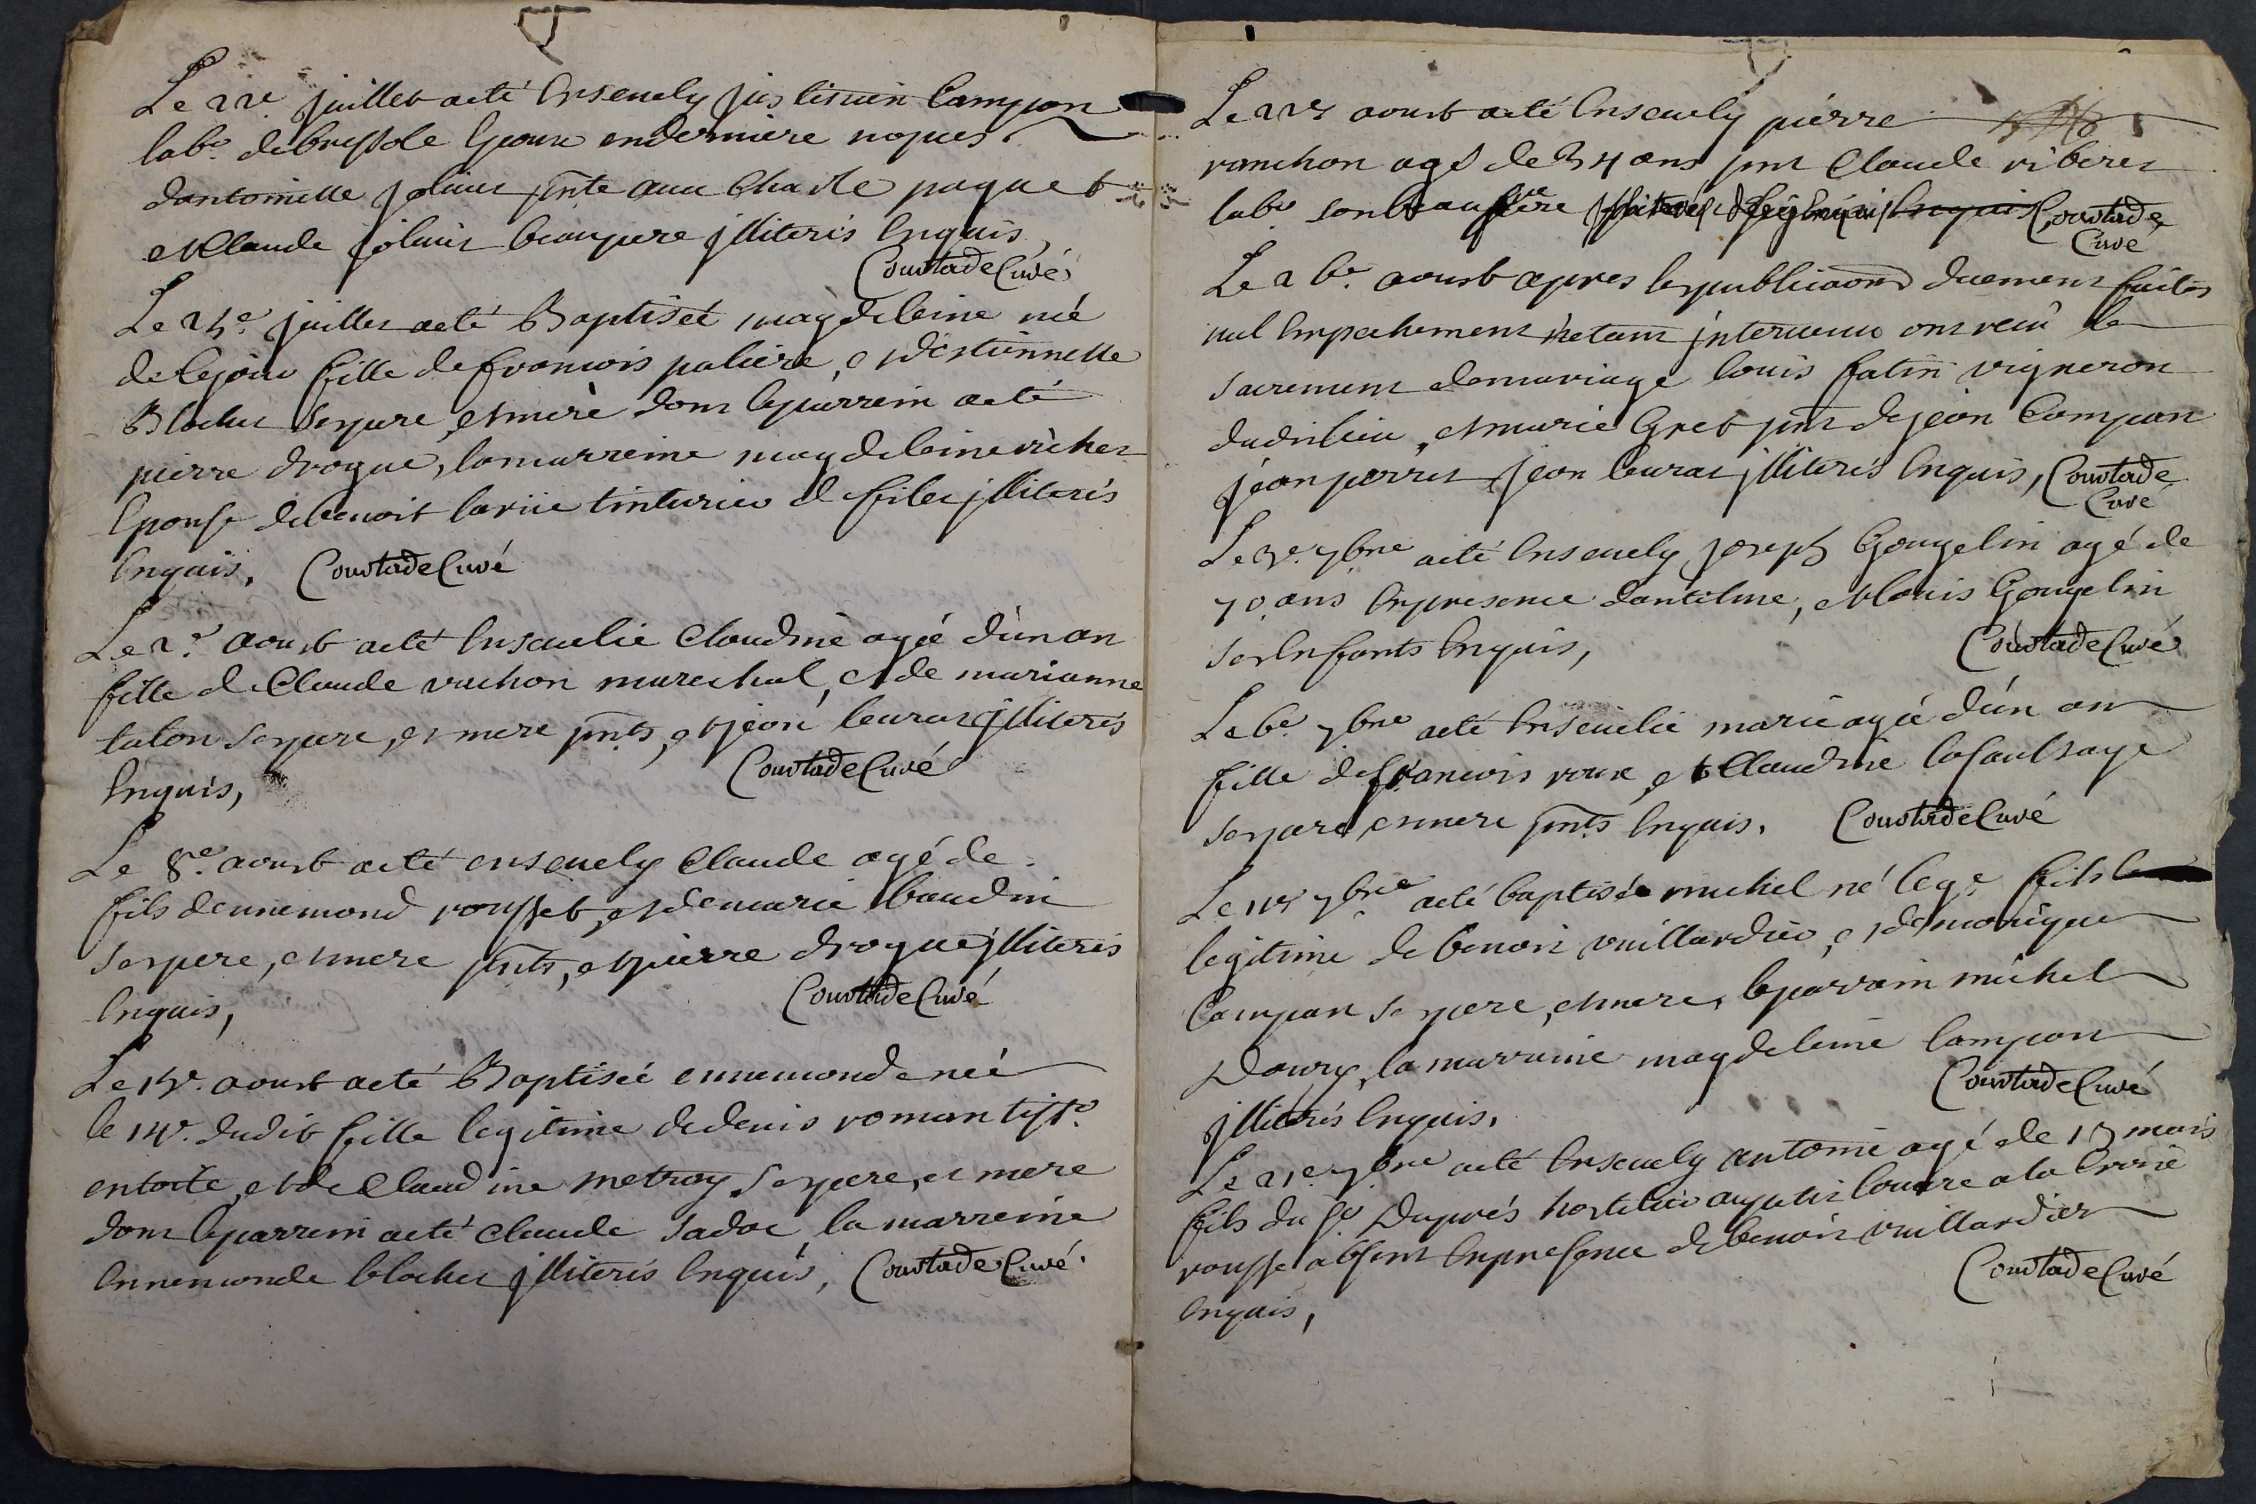 Le 22e juillet a eté Ensevely justinien Campan
labr. de bressole Epoux en derniere nopces
dantoinette jolivet pnte aux Charle paquet
et Claude jolivet beaupere illiterés Enquis,
Courtade Curé
Le 25e juillet a eté Baptiseé magdeleine né
de le jour fille de francois paliere, et destiennette
Blachet Ses pere, et mere dont le parrein a eté
pierre drogue, la marreine magdeleine richer
Epouse de benoit lavie tinturier de fil illiterés
Enquis, Courtade Curé
Le 2e aoust a eté Ensevelie Claudine ageé d'un an
fille de Claude vachon marechal, et de marianne
talon Ses pere, et mere pnts, et jean leurat illiterés
Enquis, Courtade Curé
Le 8e aoust a eté ensevely Claude agé de
fils dennemond rousset, et de marie baudin
Ses pere, et mere pnts, et pierre drogue illiterés
Enquis, Courtade Curé
Le 15e aoust a eté Baptiseé ennemonde neé
le 14e dudit fille legitime de denis roman tissr.
en toile, et de Claudine metray Ses pere, et mere
dont le parrein a eté Claude Sadoc la marreine
Ennemonde blachet illiterés Enquis, Courtade Curé
Le 22e aoust a eté Ensevely pierre
ranchon agé de 34 ans pnt Claude riberet
labr. son beau frere Courtade
Curé
Le 26e aoust apres les publicaons duement faites
nul Empechement netant intervenu ont recû le
sacrement de mariage louis fatin vigneron
dudit lieu, et marie Gret pnts de jean Campan
jean perret jean leurat illiterés Enquis, Courtade
Curé
Le 3e 7bre a eté Ensevely joseph Gougelin agé de
70 ans En presence dantelme, et louis Gougelin
ses Enffants Enquis, Courtade Curé
Le 6e 7bre a eté Ensevelie marie ageé d'un an
fille de francois roux et Claudine lasaulsaye
Ses pere, et mere pnts Enquis. Courtade Curé
Le 11e 7bre a eté baptisée michel né le 9e fils
legitime de benoit vuillardier, et de monique
Campan Ses pere, et mere, le parrain michel
Daury, la marraine magdeleine Campan
illiterés Enquis, Courtade Curé
Le 21e 7bre a eté Ensevely antoine agé de 15 mois
fils du Sr Duprés hostelier au petit louvre a la Croix
rousse absent En presence de benoit vuillardier
Enquis, Courtade Curé